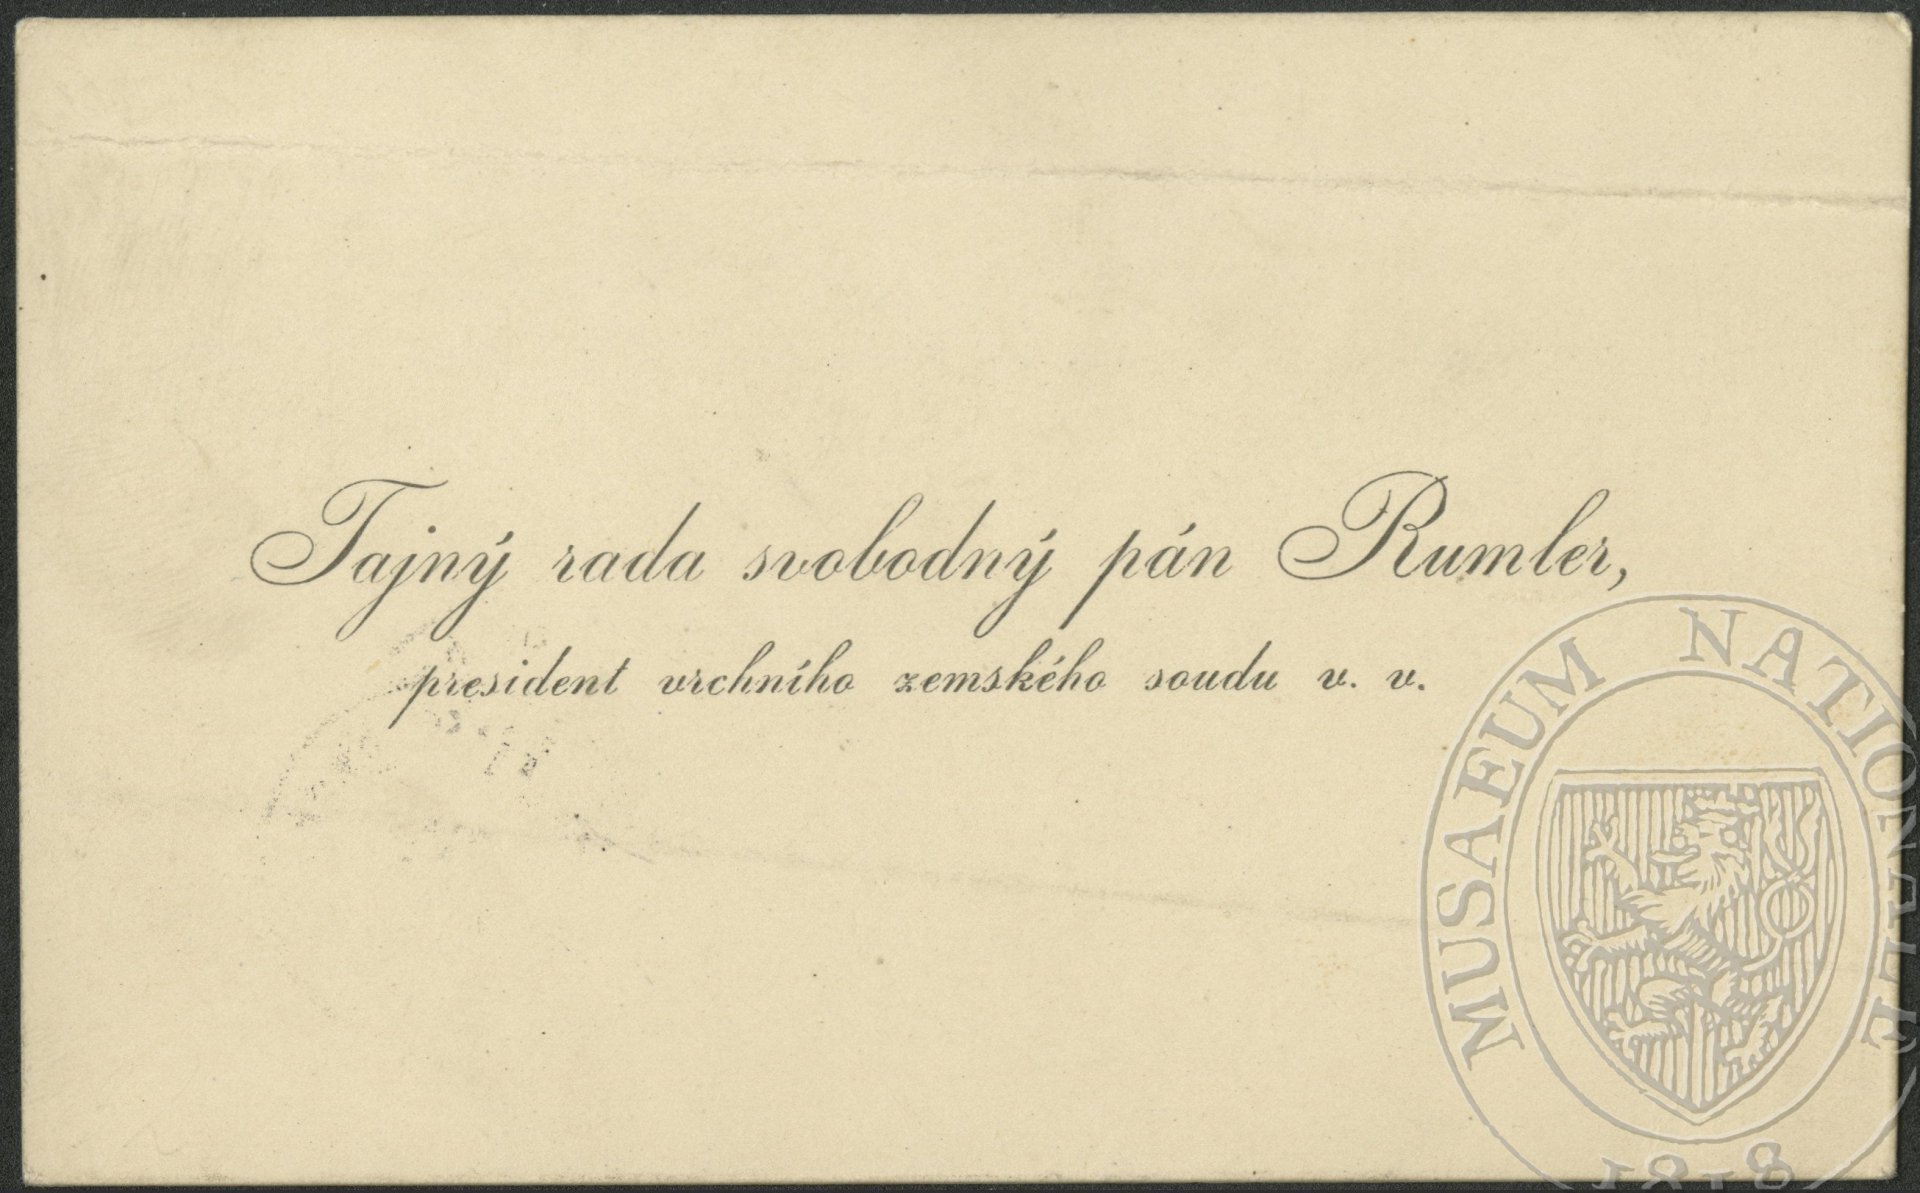 Tajný rada svobodný pán Rumler,
president vrchního zemského soudu v. v.
MUSAEUM NATIONALE
1818